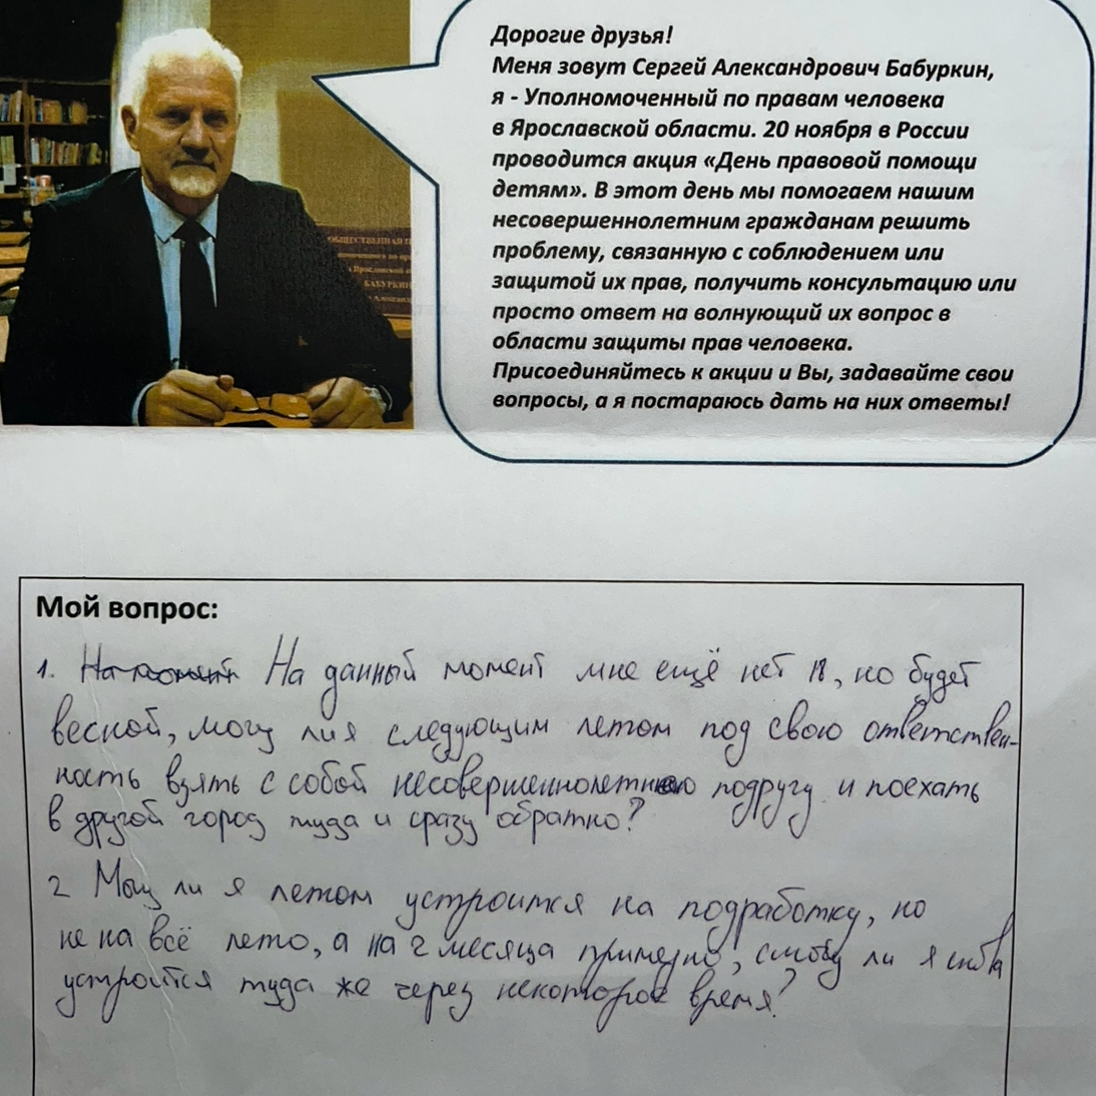 Дорогие друзья!
Меня зовут Сергей Александрович Бабуркин,
я - Уполномоченный по правам человека
в Ярославской области. 20 ноября в России
проводится акция «День правовой помощи
детям». В этот день мы помогаем нашим
несовершеннолетним гражданам решить
проблему, связанную с соблюдением или
защитой их прав, получить консультацию или
просто ответ на волнующий их вопрос в
области защиты прав человека.
Присоединяйтесь к акции и Вы, задавайте свои
вопросы, а я постараюсь дать на них ответы!
ОБЩЕСТВЕННАЯ П
БАБУРКИН
Мой вопрос:
1. На данный момент мне ещё нет 18, но будет
весной, могу ли я следующим летом под свою ответствен-
ность взять с собой несовершеннолетнюю подругу и поехать
в другой город туда и сразу обратно?
2 Могу ли я летом устроится на подработку, но
не на всё лето, а на 2 месяца примерно, смогу ли я снова
устроится туда же через некоторое время?